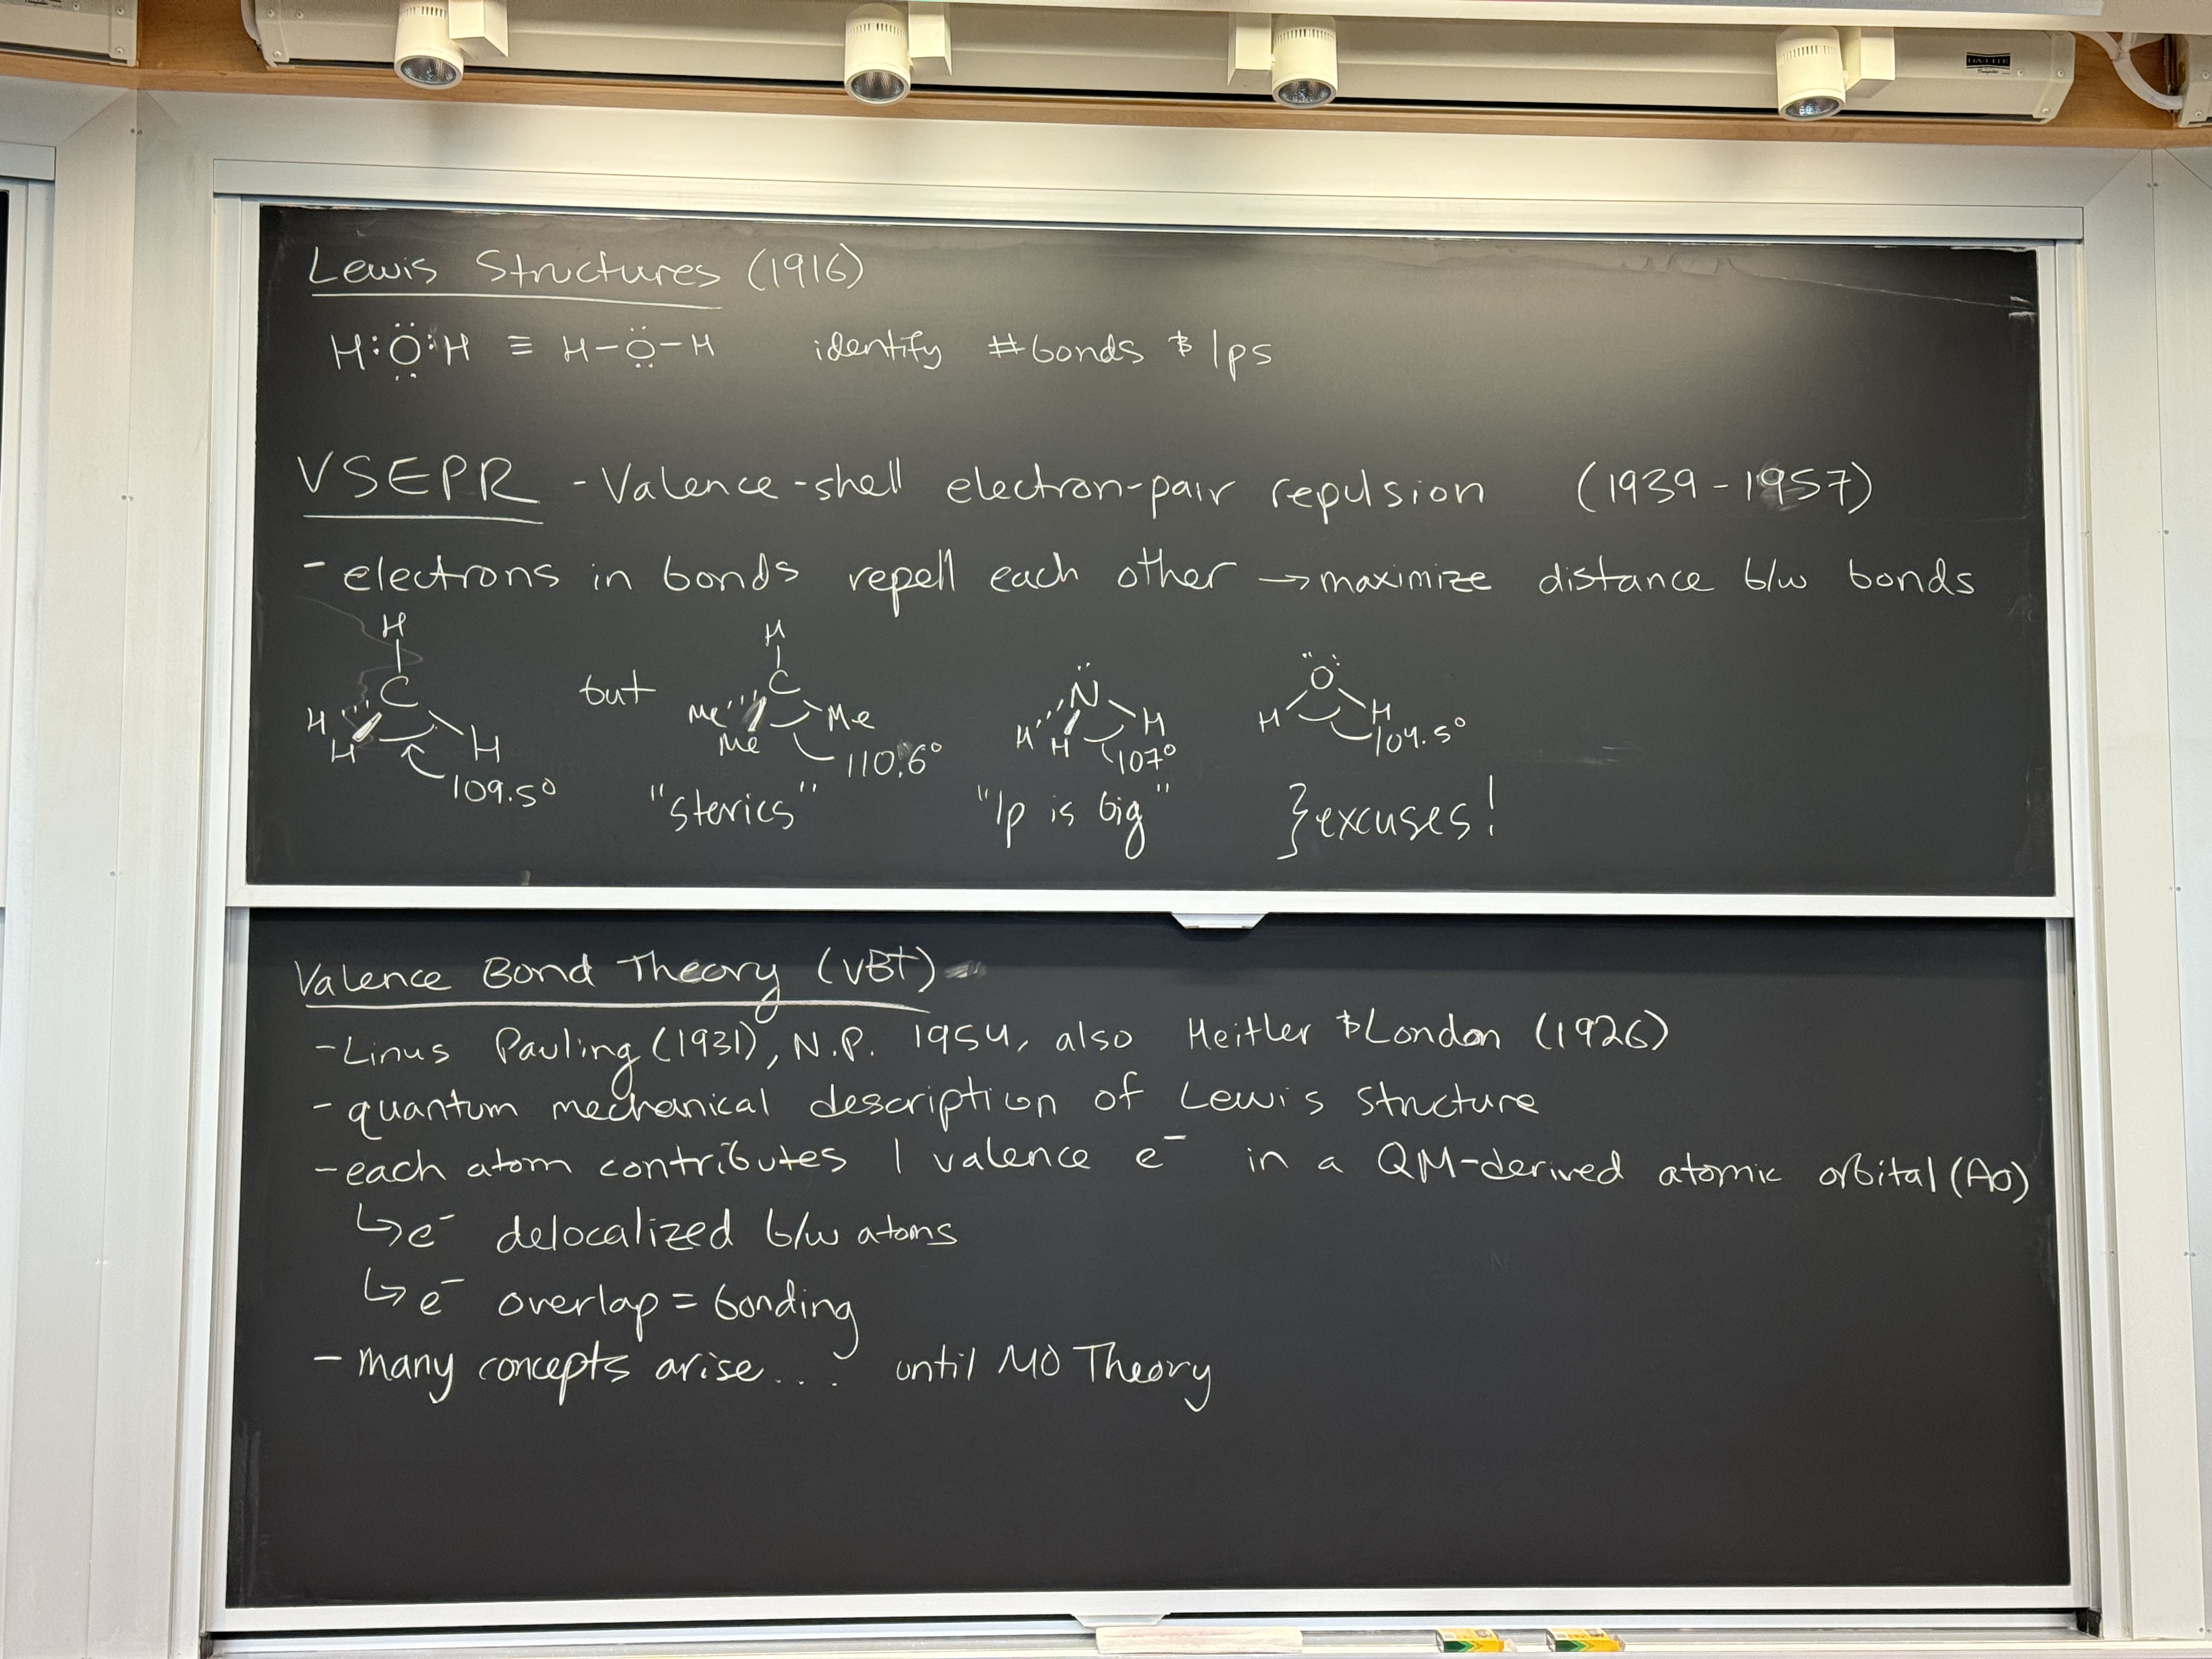 DA-LITE
Lewis Structures (1916)
H:Ö:H ≡ H–Ö–H identify # bonds & lps
VSEPR - Valence-shell electron-pair repulsion (1939-1957)
- electrons in bonds repell each other → maximize distance b/w bonds
H H
C but C N O
H H H Me Me Me H H H H H
109.5° 110.6° 107° 104.5°
"sterics" "lp is big" } excuses!
Valence Bond Theory (VBT)
- Linus Pauling (1931), N.P. 1954, also Heitler & London (1926)
- quantum mechanical description of Lewis structure
- each atom contributes 1 valence e⁻ in a QM-derived atomic orbital (AO)
↳ e⁻ delocalized b/w atoms
↳ e⁻ overlap = bonding
- many concepts arise... until MO Theory